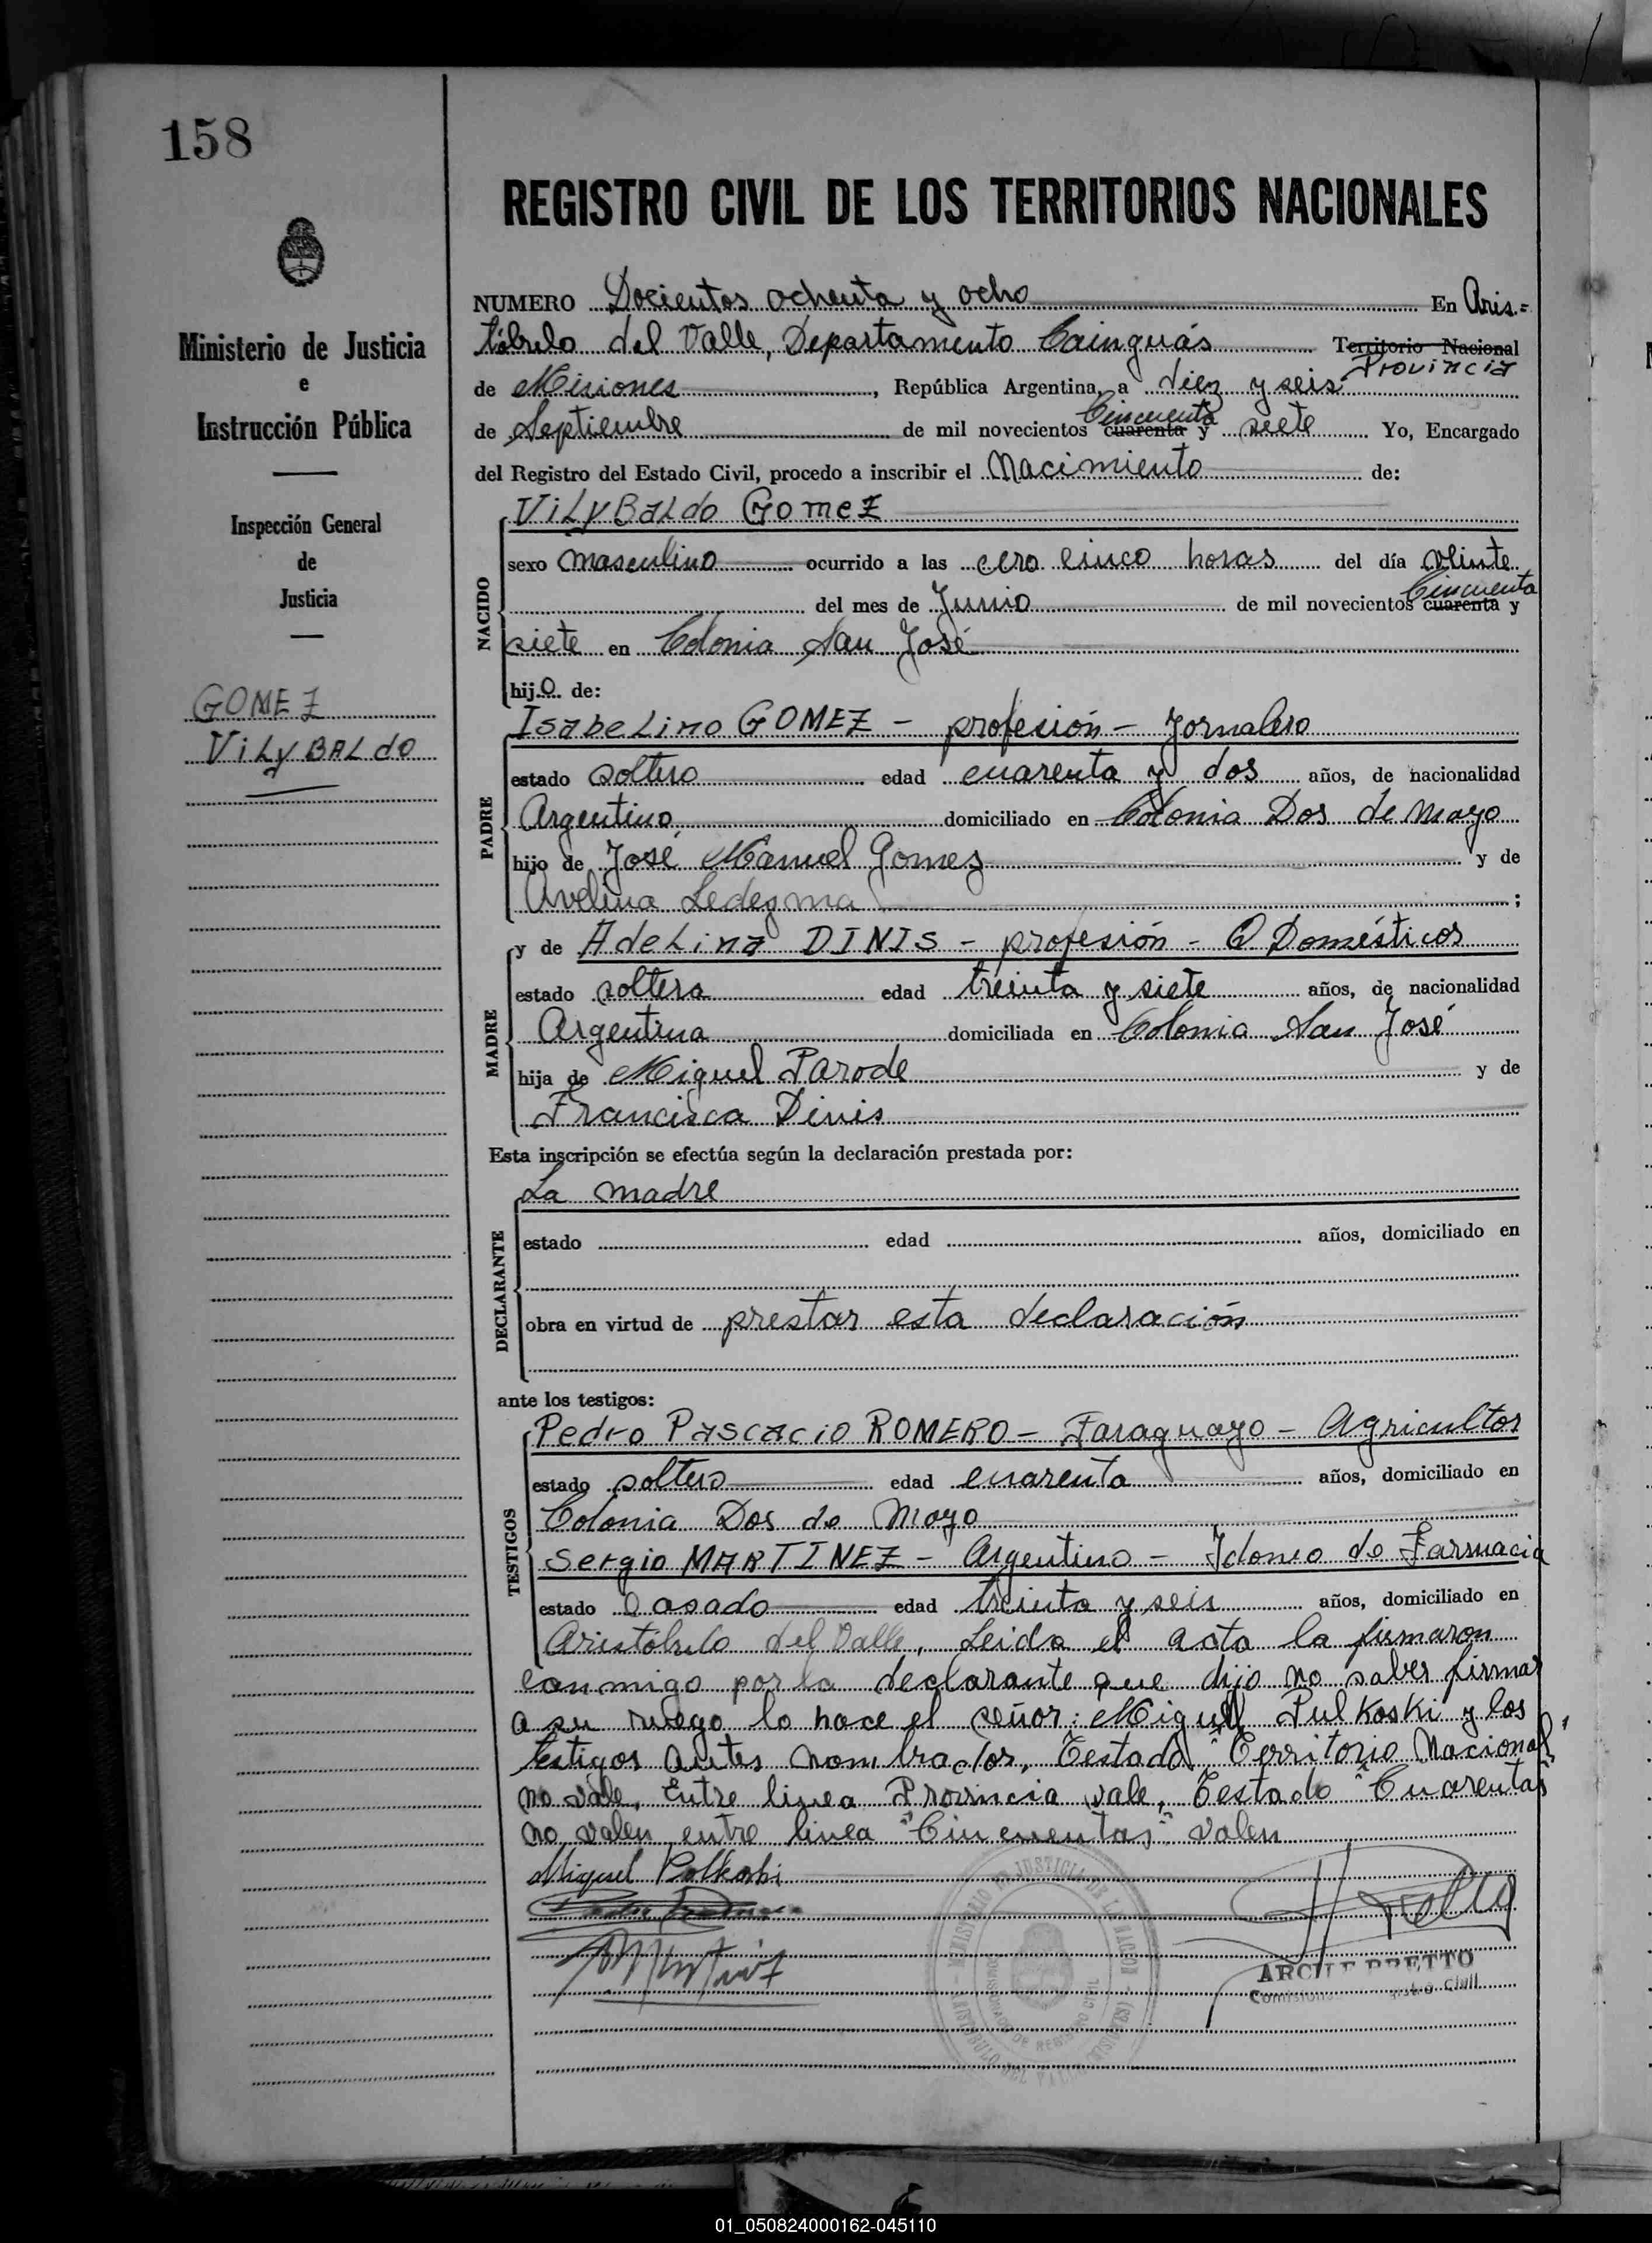 158
REGISTRO CIVIL DE LOS TERRITORIOS NACIONALES
Ministerio de Justicia
e
Instrucción Pública
Inspección General
de
Justicia
GOMEZ
VilyBALdo
NUMERO Docientos ochenta y ocho En Aris.=
tóbulo del Valle, Departamento Cainguás Territorio Nacional
Provincia
de Misiones, República Argentina, a diez y seis
de Septiembre de mil novecientos cuarenta Cincuenta y siete Yo, Encargado
del Registro del Estado Civil, procedo a inscribir el Nacimiento de:
NACIDO
VilyBaldo GomeZ
sexo masculino ocurrido a las cero cinco horas del día veinte
del mes de Junio de mil novecientos cuarenta Cincuenta y
siete en Colonia San José
hijo de:
PADRE
IsabeLino GOMEZ - profesión - Jornalero
estado soltero edad cuarenta y dos años, de nacionalidad
Argentino domiciliado en Colonia Dos de mayo
hijo de José Manuel Gomez y de
Avelina Ledezma ;
MADRE
y de AdeLina DINIS - profesión - Q Domésticos
estado soltera edad treinta y siete años, de nacionalidad
Argentina domiciliada en Colonia San José
hija de Miguel Parode y de
Francisca Dinis
Esta inscripción se efectúa según la declaración prestada por:
DECLARANTE
La madre
estado edad años, domiciliado en
obra en virtud de prestar esta declaración
ante los testigos:
TESTIGOS
Pedro Pascacio ROMERO - Paraguayo - Agricultor
estado soltero edad cuarenta años, domiciliado en
Colonia Dos de Mayo
Sergio MARTINEZ - Argentino - Idoneo de Farmacia
estado Casado edad treinta y seis años, domiciliado en
Aristóbulo del Valle, Leida el acta la firmaron
conmigo por la declarante que dijo no saber firmar
a su ruego lo hace el señor: Miguel Pulkoski y los
testigos antes nombrados, Testado "Territorio Nacional"
no vale, Entre linea Provincia vale, Testado "Cuarentas"
no valen entre linea "Cincuentas" valen
Miguel Polkoski
MINISTERIO DE JUSTICIA DE LA NACION
ARISTOBULO DEL VALLE (MISIONES)
PRETTO
Civil
01_050824000162-045110